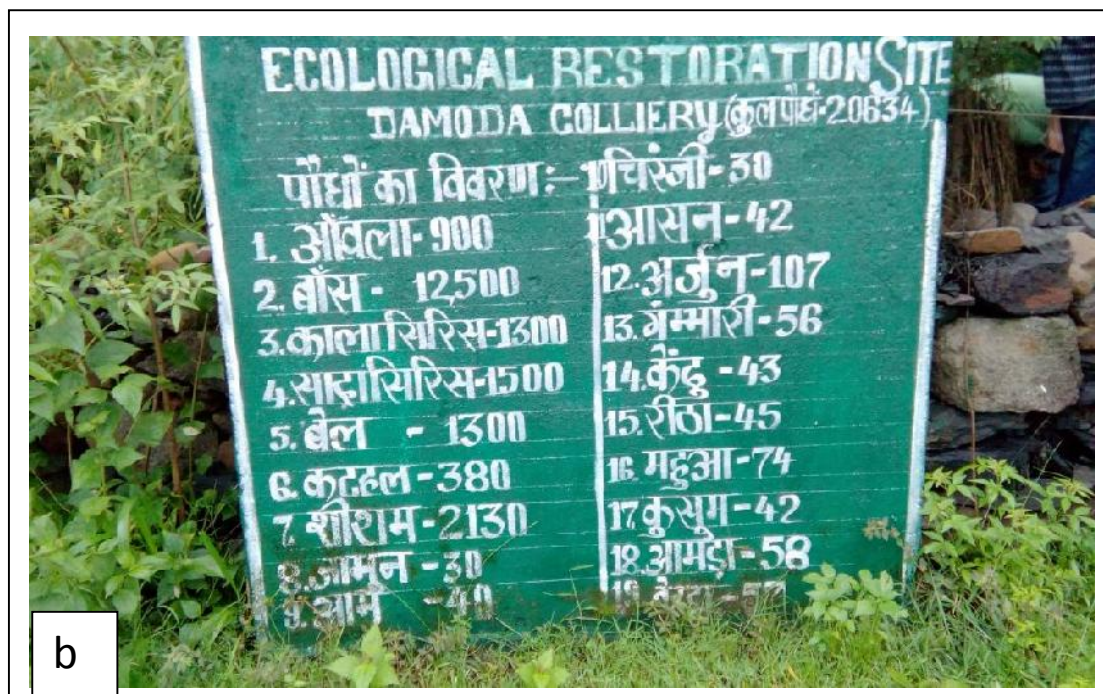 ECOLOGICAL RESTORATION SITE
DAMODA COLLIERY (कुल पौधे-20634)
पौधों का विवरण:-
1. आँवला-900
2. बाँस - 12,500
3. काला सिरिस-1300
4. सादा सिरिस-1500
5. बेल - 1300
6. कटहल-380
7. शीशम-2130
8. जामुन-30
9. आम -40
10 चिरंजी-30
11 आसन-42
12. अर्जुन-107
13. गम्मारी-56
14. केंदु-43
15. रीठा-45
16. महुआ-74
17 कुसुम-42
18. आमड़ा-58
19.
b